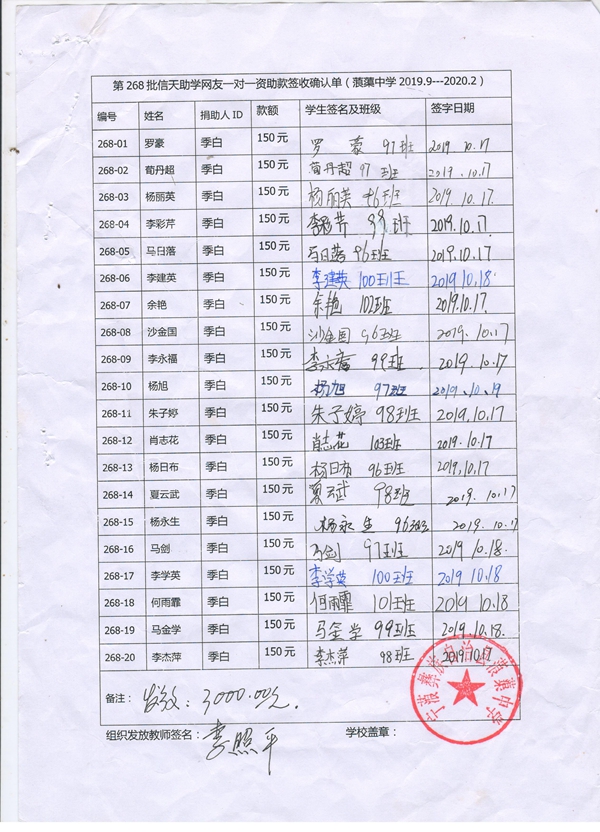 第268批信天助学网友一对一资助款签收确认单（蒗蕖中学2019.9---2020.2）
编号 姓名 捐助人ID 款额 学生签名及班级 签字日期
268-01 罗豪 季白 150元 罗豪 97班 2019 10.17
268-02 荀丹超 季白 150元 荀丹超 97班 2019.10.17
268-03 杨丽英 季白 150元 杨丽英 96班 2019.10.17
268-04 李彩芹 季白 150元 李彩芹 99班 2019.10.17
268-05 马日落 季白 150元 马日落 96班 2019.10.17
268-06 李建英 季白 150元 李建英 100班 2019 10.18
268-07 余艳 季白 150元 余艳 102班 2019.10.17.
268-08 沙金国 季白 150元 沙金国 96班 2019.10.17
268-09 李永福 季白 150元 李永福 99班 2019.10.17
268-10 杨旭 季白 150元 杨旭 97班 2019.10.19
268-11 朱子婷 季白 150元 朱子婷 98班 2019.10.17
268-12 肖志花 季白 150元 肖志花 103班 2019.10.17
268-13 杨日布 季白 150元 杨日布 96班 2019.10.17
268-14 夏云武 季白 150元 夏云武 98班 2019.10.17
268-15 杨永生 季白 150元 杨永生 96班 2019.10.17
268-16 马剑 季白 150元 马剑 97班 2019 10.18.
268-17 李学英 季白 150元 李学英 100班 2019 10.18
268-18 何雨霏 季白 150元 何雨霏 101班 2019 10.18
268-19 马金学 季白 150元 马金学 99班 2019.10.18.
268-20 李杰萍 季白 150元 李杰萍 98班 2019.10.17
备注： 发放：3000.00元.
组织发放教师签名：李照平 学校盖章：
宁蒗彝族自治县蒗蕖中学